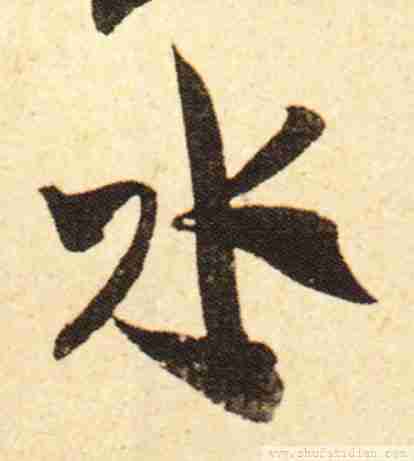 水
www.shufazidian.com